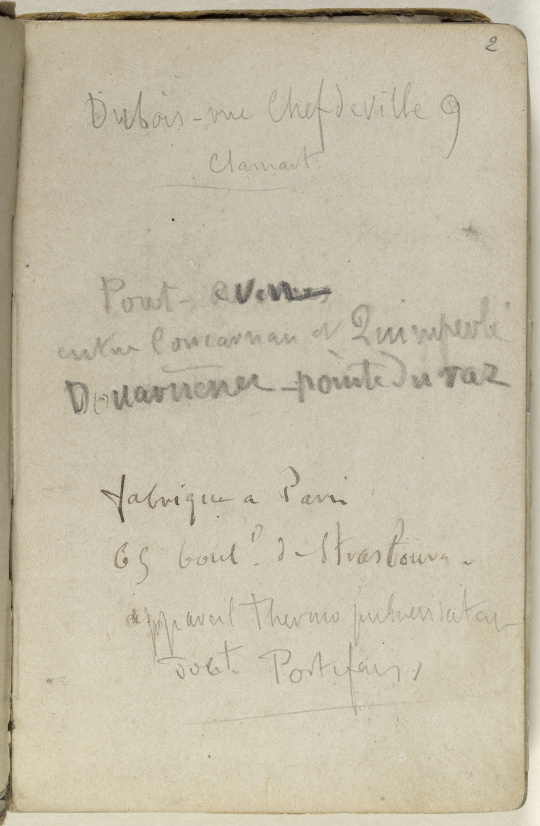 2
Dubois - rue Chef de ville 9
Clamart
Pont-Aven
entre Concarnau et Quimperlé
Douarnenez - pointe du raz
fabrique a Paris
65 boul.d de Strasbourg.
appareil thermo pulverisateur
doct.